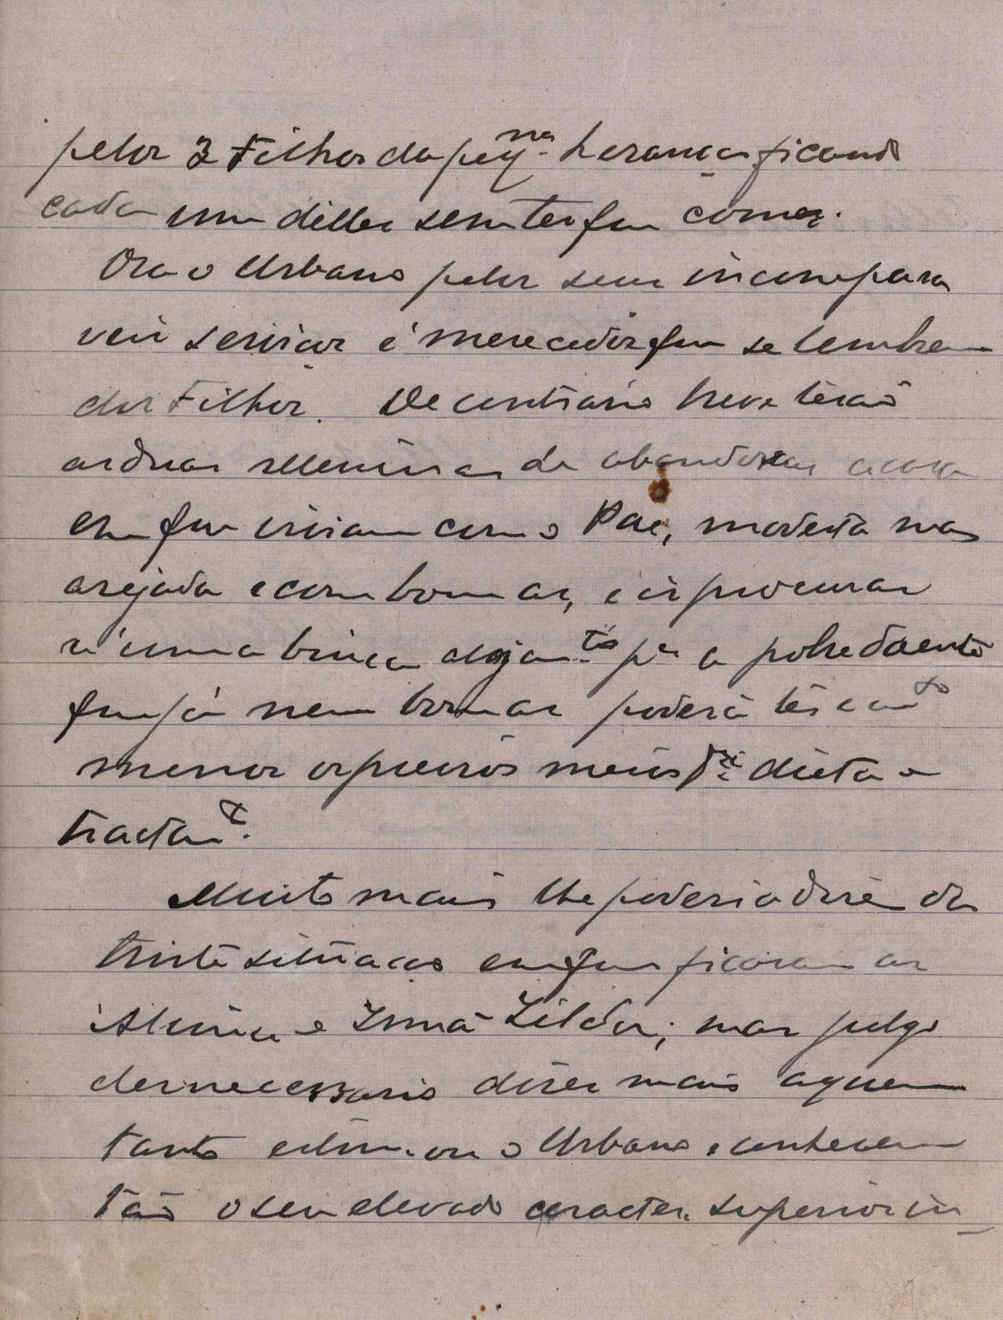 pelos 3 Filhos da peqna herança ficando
cada um delles sem ter que comer.
Ora o Urbano pelos seus incompara
veis serviços é merecedor que se lembrem
dos Filhos. De contrario breve terão
as duas meninas de abandonar a casa
em que viviam com o Pae, modesta mas
arejada e com bom ar, e ir procurar
n'uma bica alojamto pa a pobre doente
que já nem bom ar poderá ter e
menor os precisos meios pra dieta e
tractamto.
Muito mais lhe poderia dizer da
triste situação em que ficaram as
Alzira e Irmã Zilda; mas julgo
desnecessario dizer mais a quem
tanto estimou o Urbano e conhecem
tão o seu elevado caracter superior in